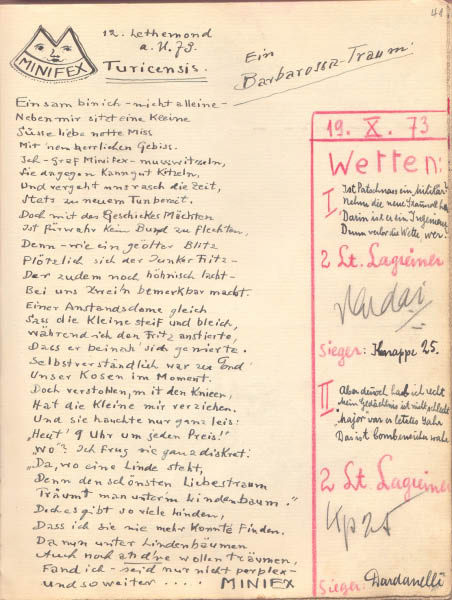 41
MINIFEX
12. Lethemond
a. U. 79.
Turicensis.
Ein
Barbarossa-Traum:
Einsam bin ich - nicht alleine -
Neben mir sitzt eine Kleine
Süsse liebe nette Miss
Mit 'nem herrlichen Gebiss.
Ich - Graf Minifex - muss witzeln,
Sie dagegen kann gut kitzeln,
Und vergeht uns rasch die Zeit,
Stets zu neuem Tun bereit.
Doch mit des Geschickes Mächten
Ist fürwahr kein Bund zu flechten,
Denn - wie ein geölter Blitz
Plötzlich sich der Junker Fritz -
Der zudem noch höhnisch lacht -
Bei uns Zwei'n bemerkbar macht.
Einer Anstandsdame gleich
Sass die Kleine steif und bleich,
während ich den Fritz anstierte,
Dass er beinah' sich genierte.
Selbstverständlich war zu End'
Unser Kosen im Moment.
Doch verstohlen, mit den Knieen,
Hat die Kleine mir verziehen.
Und sie hauchte nur ganz leis:
"Heut' 9 Uhr um jeden Preis!"
"Wo"? Ich frug sie ganz diskret:
"Da, wo eine Linde steht,
Denn den schönsten Liebestraum
Träumt man unter'm Lindenbaum."
Doch es gibt so viele Linden,
Dass ich sie nie mehr konnte finden.
Da nun unter Lindenbäumen
Auch noch and're wollen träumen,
Fand ich - seid nur nicht perplex -
Und so weiter ....
MINIFEX
19. X. 73
Wetten:
I
Ist Patschnass ein Militär?
Nehm die neue
Darin ist er ein Ingenieur
Denn verlor die Wette, wer?
2 Lt. Lagreiner
Sieger: Knappe 25.
II
Aber deusch hab ich recht
Mein Gedächtnis ist nicht schlecht
"Major" war er letztes Jahr
Das ist bombensicher wahr
2 Lt. Lagreiner
Kp 25
Sieger: Dardanelli